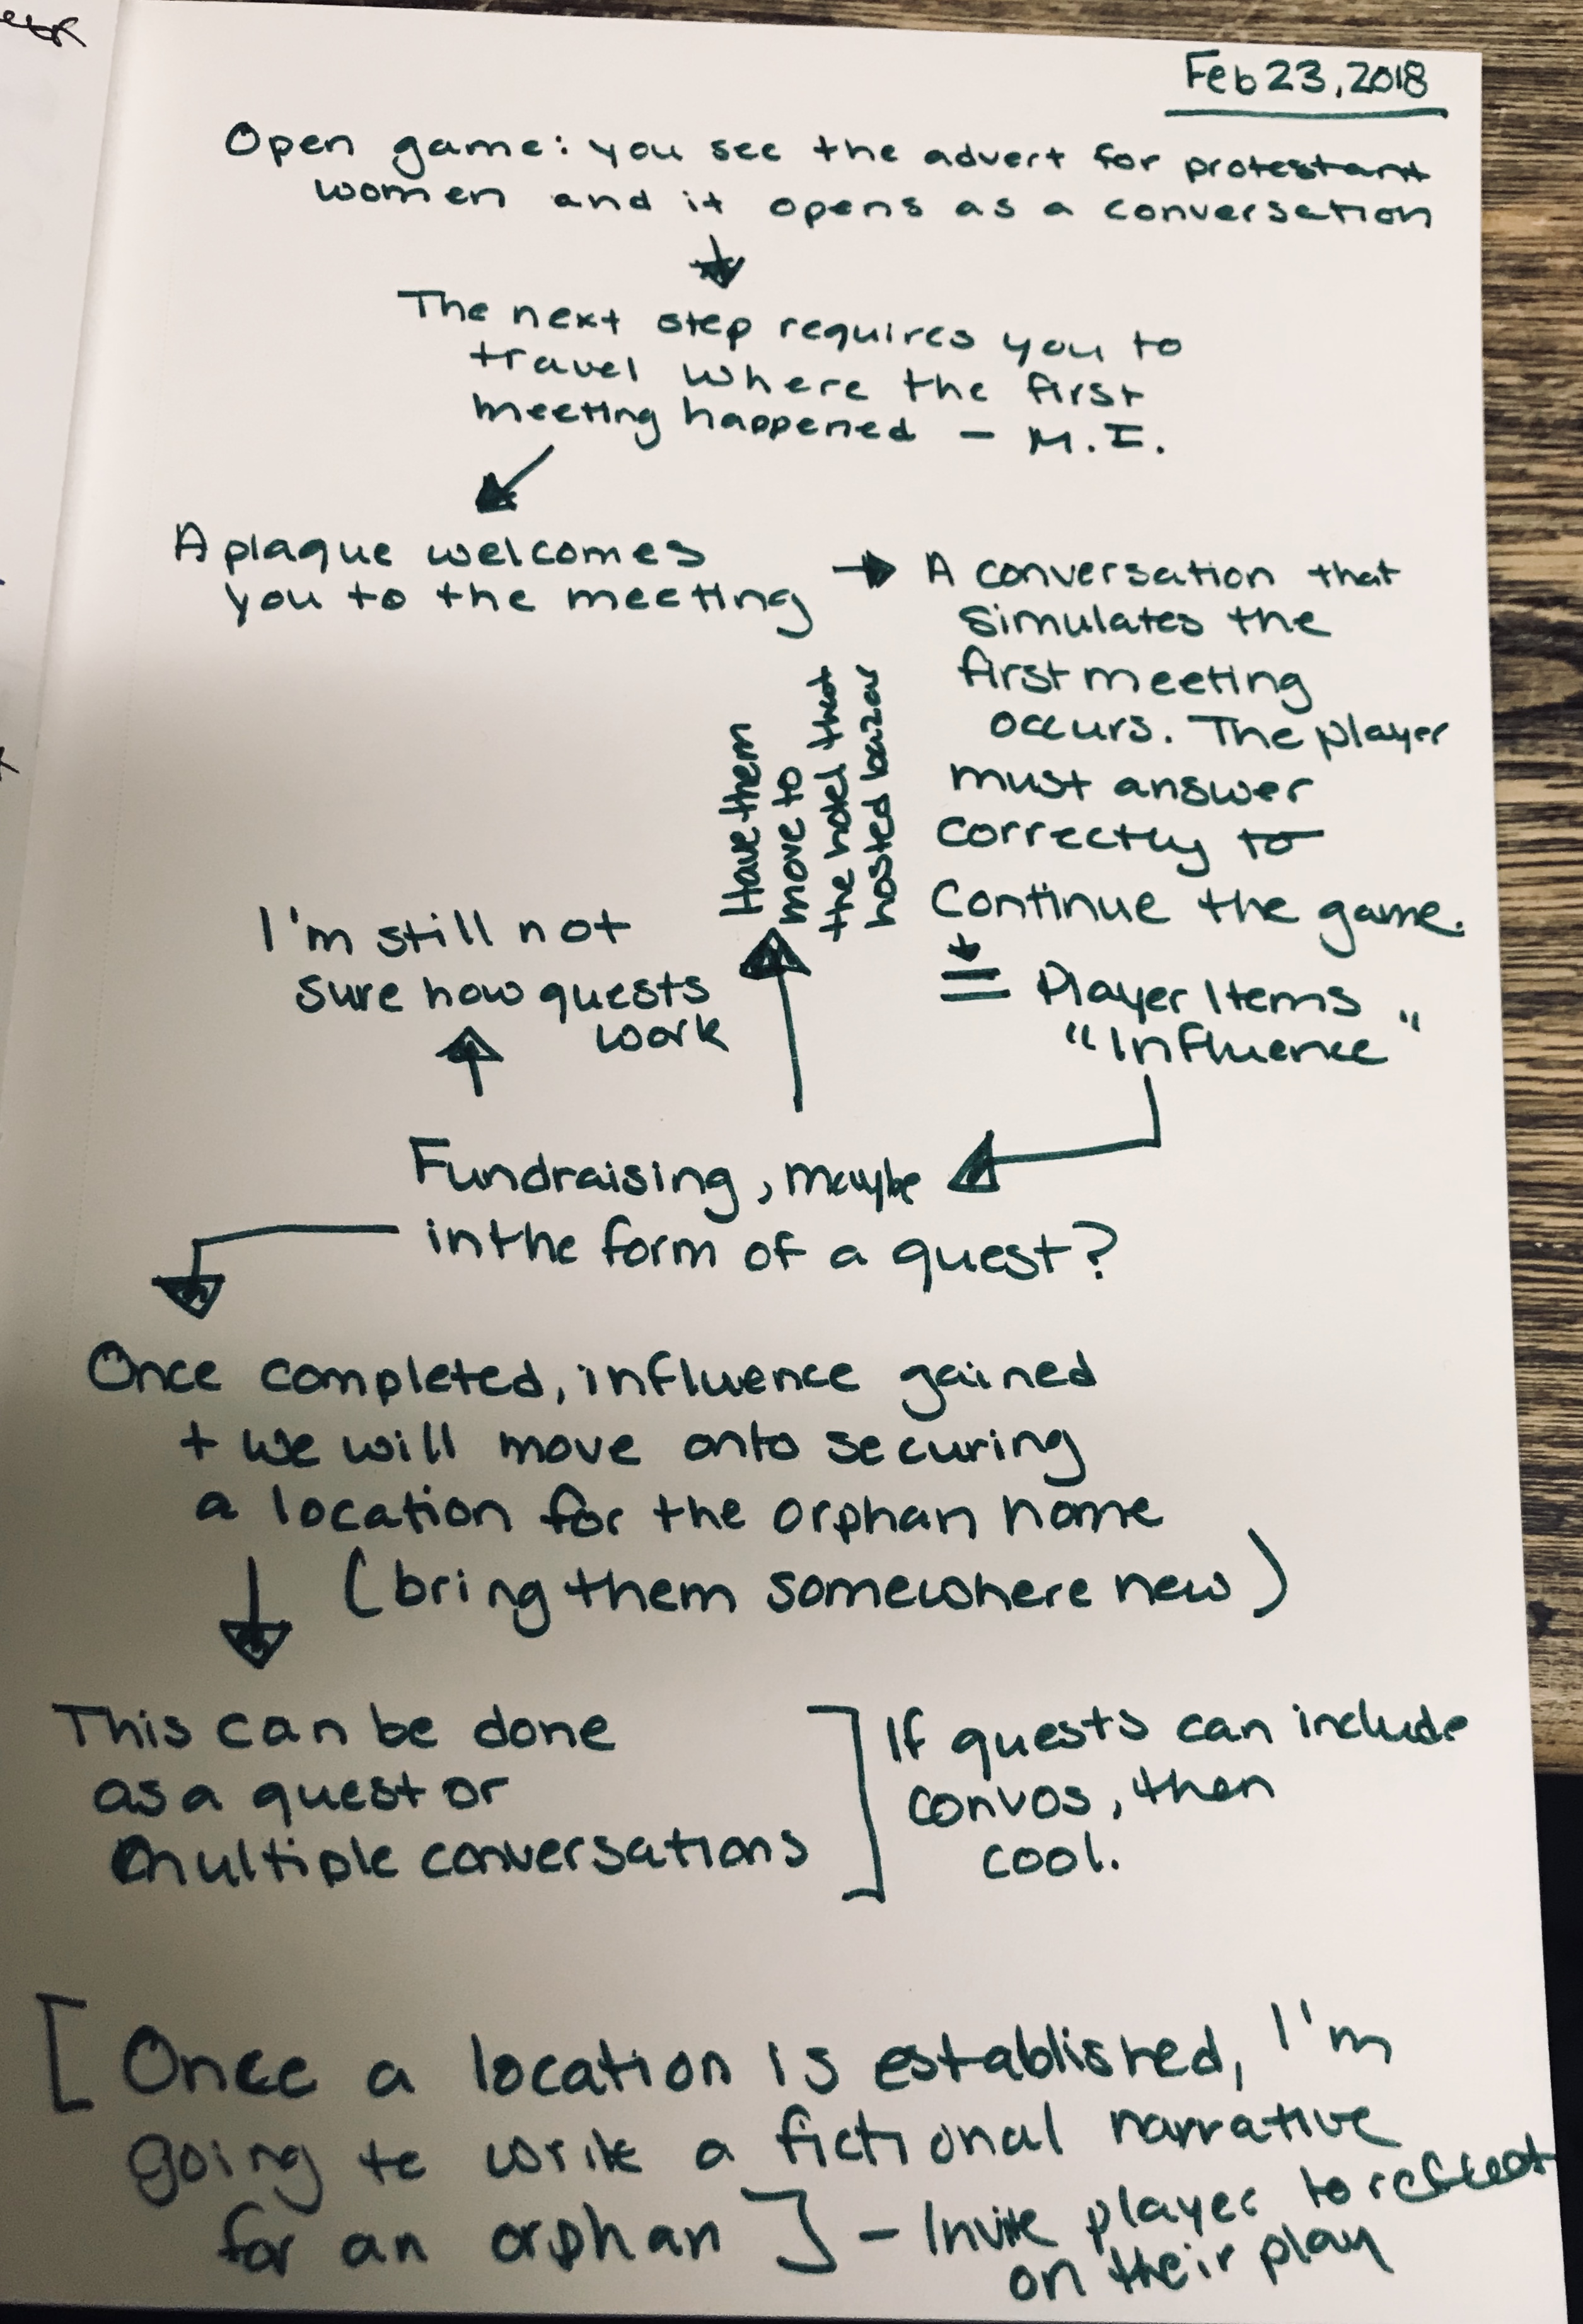 Feb 23, 2018
Open game: you see the advert for protestant
women and it opens as a conversation
The next step requires you to
travel where the first
meeting happened - M.I.
A plaque welcomes
you to the meeting
A conversation that
simulates the
first meeting
occurs. The player
must answer
correctly to
continue the game.
= Player Items
"Influence"
Have them
move to
the hotel that
hosted bazar
I'm still not
sure how quests
work
Fundraising, maybe
in the form of a quest?
Once completed, influence gained
+ we will move onto securing
a location for the orphan home
(bring them somewhere new)
This can be done
as a quest or
multiple conversations
If quests can include
convos, then
cool.
[Once a location is established, I'm
going to write a fictional narrative
for an orphan] - Invite player to reflect
on their play